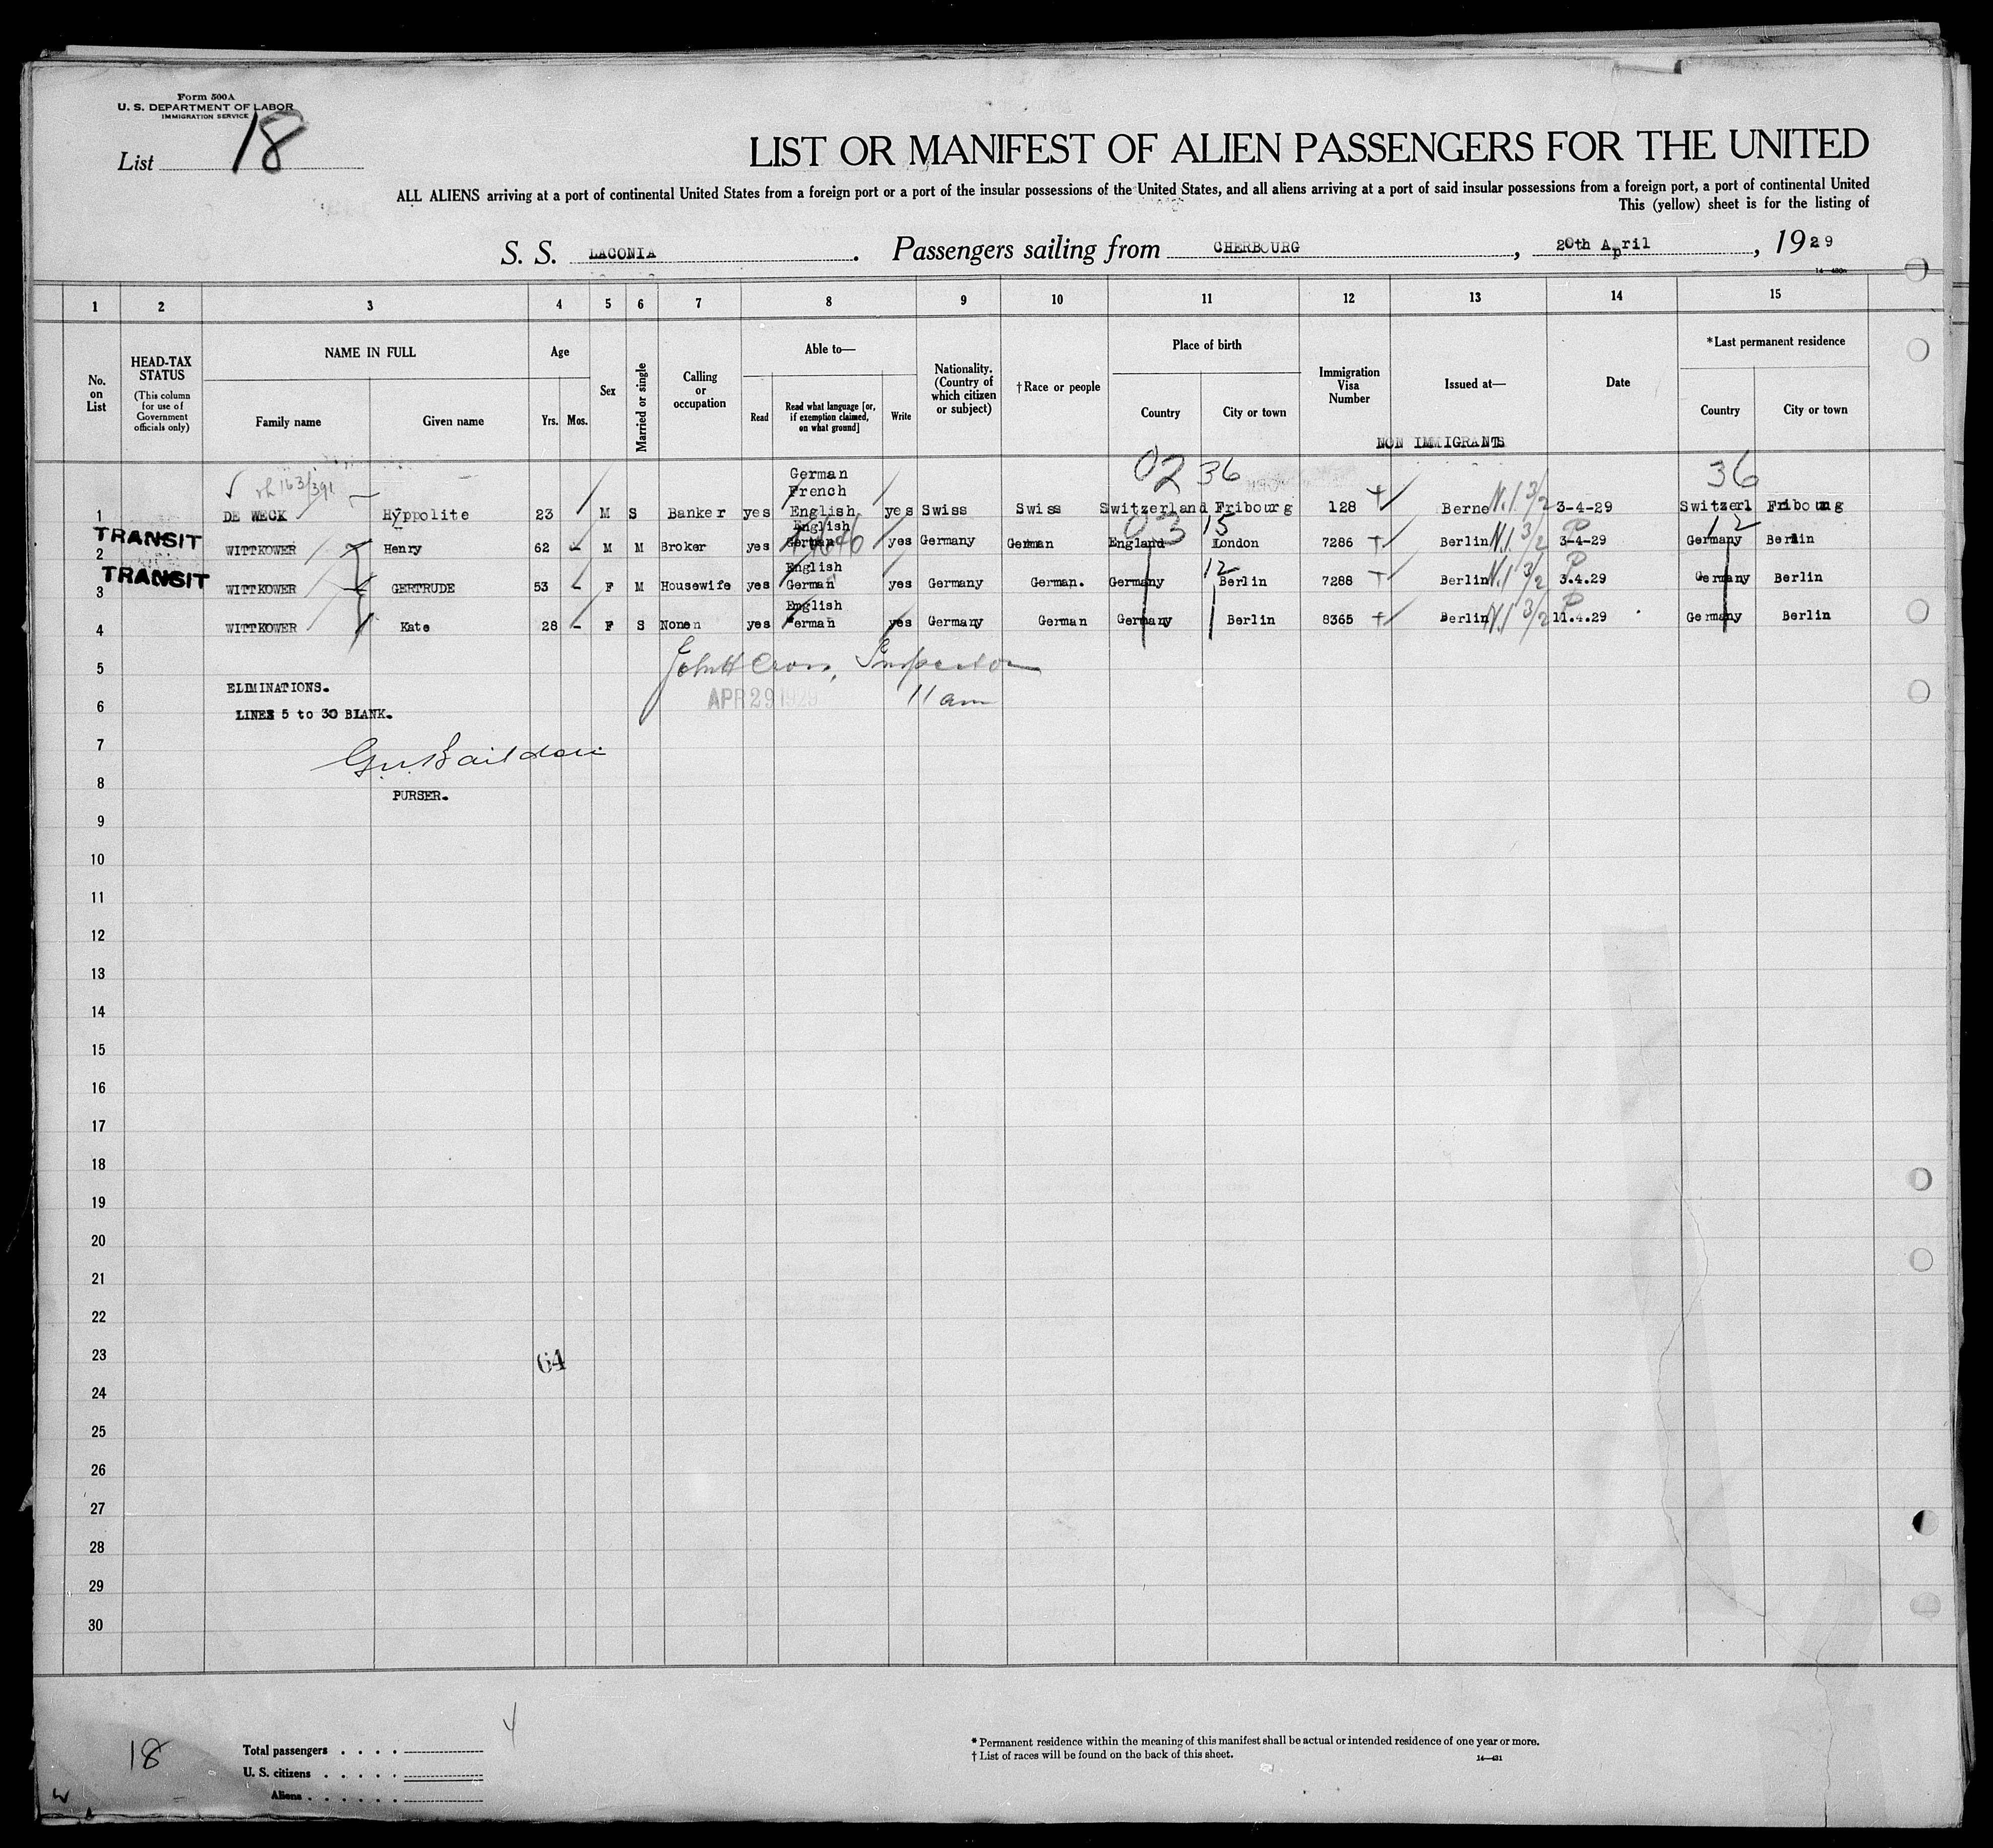 Form 500A
U. S. DEPARTMENT OF LABOR
IMMIGRATION SERVICE
List 18
LIST OR MANIFEST OF ALIEN PASSENGERS FOR THE UNITED
ALL ALIENS arriving at a port of continental United States from a foreign port or a port of the insular possessions of the United States, and all aliens arriving at a port of said insular possessions from a foreign port, a port of continental United
This (yellow) sheet is for the listing of
S. S. LACONIA . Passengers sailing from CHERBOURG , 20th April , 1929
14—430a
1 2 3 4 5 6 7 8 9 10 11 12 13 14 15
No. on List
HEAD-TAX STATUS
(This column for use of Government officials only)
NAME IN FULL
Family name Given name
Age
Yrs. Mos.
Sex
Married or single
Calling or occupation
Able to—
Read
Read what language [or, if exemption claimed, on what ground]
Write
Nationality. (Country of which citizen or subject)
†Race or people
Place of birth
Country City or town
Immigration Visa Number
Issued at—
NON IMMIGRANTS
Date
*Last permanent residence
Country City or town
02 36 36
163/391
1 DE WECK Hyppolite 23 M S Banker yes German French English yes Swiss Swiss Switzerland Fribourg 128 Berne N.1 3/2 3-4-29 Switzerl Fribourg
03 15 12
TRANSIT
2 WITTKOWER Henry 62 - M M Broker yes English German yes Germany German England London 7286 Berlin N.1 3/2 P 3-4-29 Germany Berlin
12
TRANSIT
3 WITTKOWER GERTRUDE 53 - F M Housewife yes English German yes Germany German. Germany Berlin 7288 Berlin N.1 3/2 P 3.4.29 Germany Berlin
4 WITTKOWER Kate 28 - F S Nonen yes English German yes Germany German Germany Berlin 8365 Berlin N.1 3/2 P 11.4.29 Germany Berlin
5 John H Cross, Inspector
6 ELIMINATIONS.
APR 29 1929 11 am
LINES 5 to 30 BLANK.
7
8
PURSER.
9
10
11
12
13
14
15
16
17
18
19
20
21
22
23 64
24
25
26
27
28
29
30
18
Total passengers . . . . 4
U. S. citizens . . . . .
Aliens . . . . . .
* Permanent residence within the meaning of this manifest shall be actual or intended residence of one year or more.
† List of races will be found on the back of this sheet.
14—431